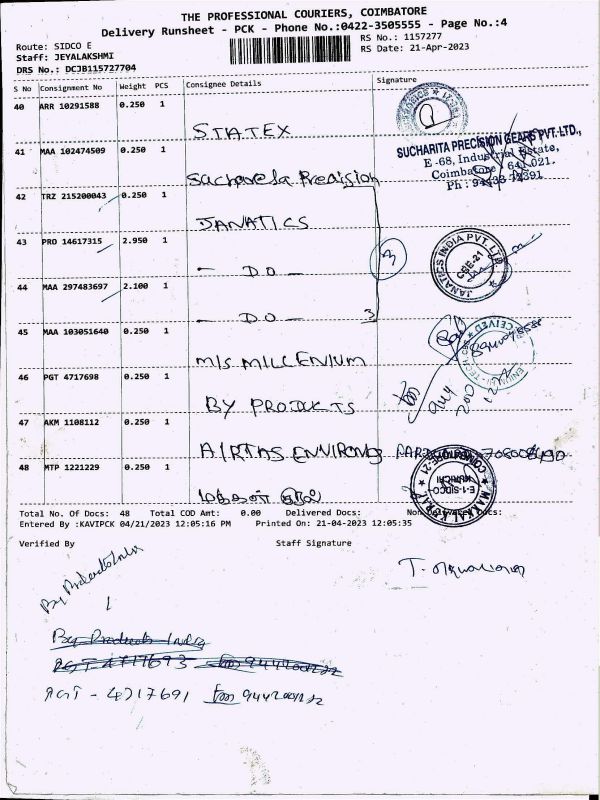 THE PROFESSIONAL COURIERS, COIMBATORE
Delivery Runsheet - PCK - Phone No.:0422-3505555 - Page No.:4
Route: SIDCO E
RS No.: 1157277
Staff: JEYALAKSHMI
RS Date: 21-Apr-2023
DRS No.: DCJB115727704
S No Consignment No Weight PCS Consignee Details Signature
40 ARR 10291588 0.250 1
STATEX
41 MAA 102474509 0.250 1
SUCHARITA PRECISION GEARS PVT. LTD.,
E-68, Industrial Estate,
Coimbatore - 641 021.
Precision
42 TRZ 215200043 0.250 1
JANATICS
43 PRO 14617315 2.950 1
- DO -
3
JANATICS INDIA PVT. LTD.
CBE-21
44 MAA 297483697 2.100 1
- DO - 3
45 MAA 103051640 0.250 1
M/S MILLENIUM
46 PGT 4717698 0.250 1
BY PRODUCTS
47 AKM 1108112 0.250 1
AIRTAS ENVIRONS
48 MTP 1221229 0.250 1
Total No. Of Docs: 48 Total COD Amt: 0.00 Delivered Docs: Non Delivered Docs:
Entered By :KAVIPCK 04/21/2023 12:05:16 PM Printed On: 21-04-2023 12:05:35
Verified By Staff Signature
By Products India
By Products India
PGT - 4717693
PGT - 4717691